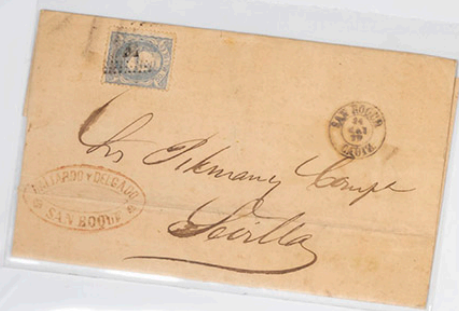 SAN ROQUE
24
70
CADIZ
Sres Pikman y Compa
Sevilla
GALLARDO Y DELGADO
SAN ROQUE